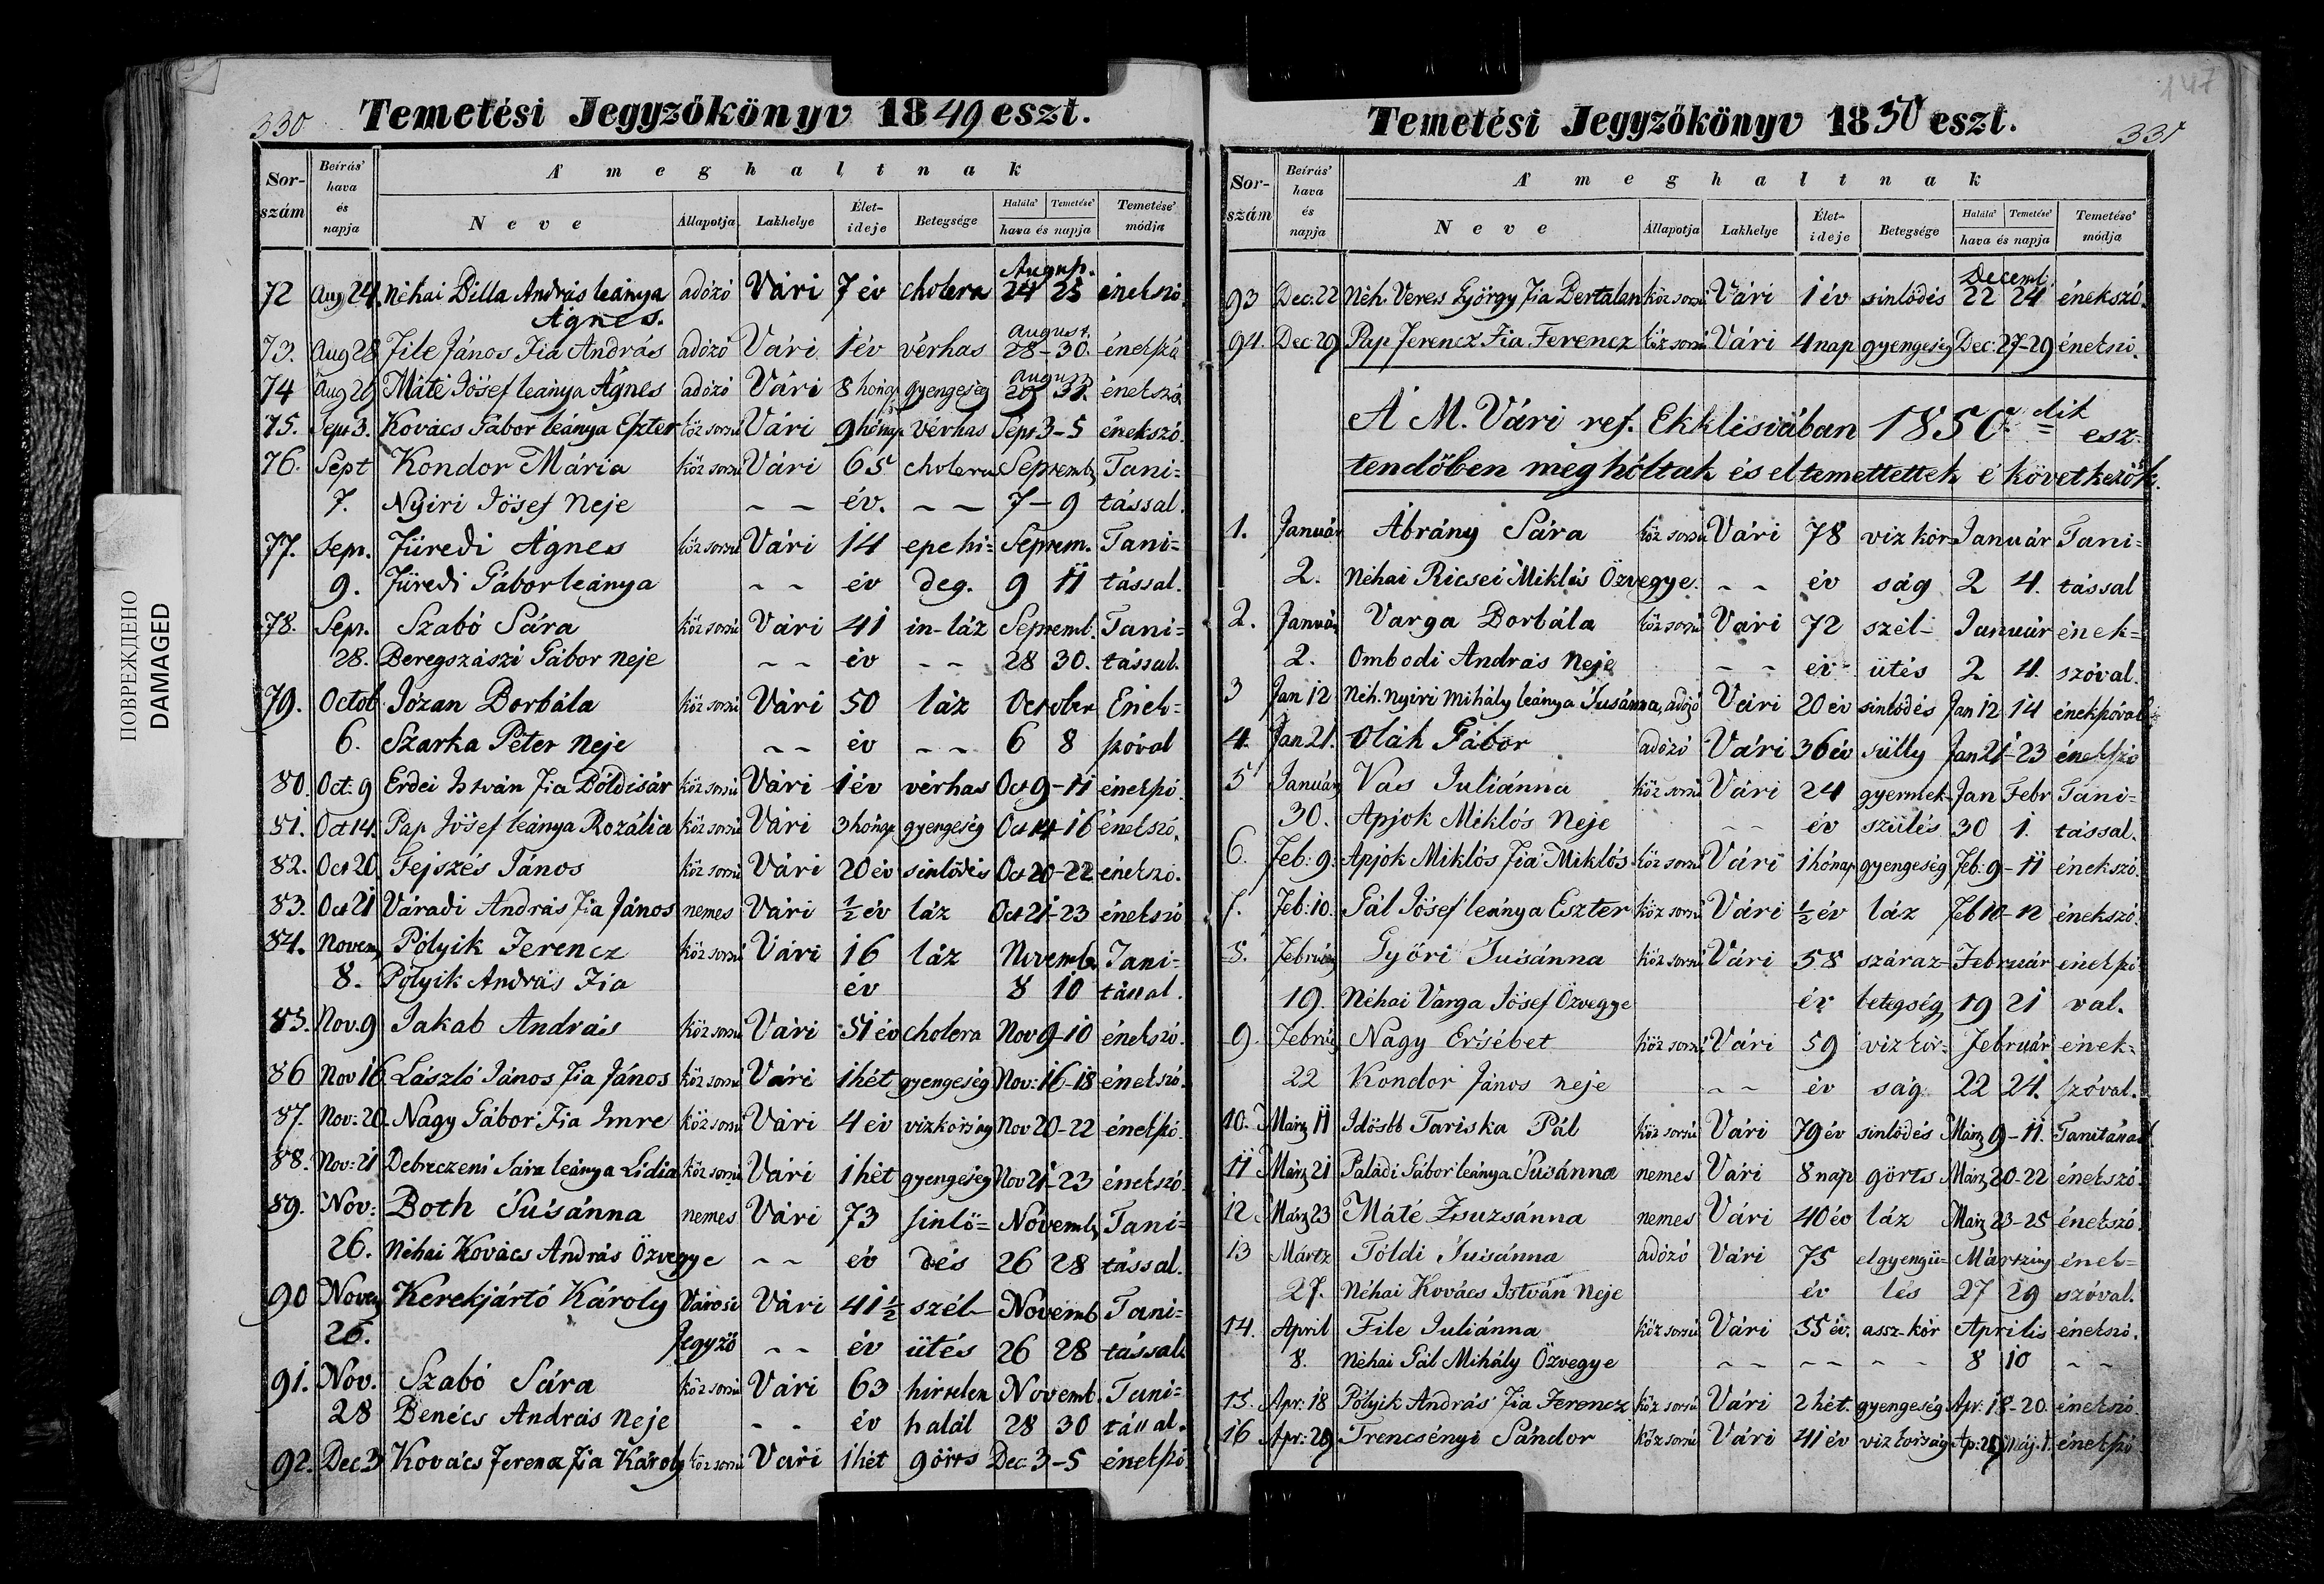 ПОВРЕЖДЕНО
DAMAGED
330
Temetési Jegyzőkönyv 1849 eszt.
Sor-szám Beírás' hava és napja A' meghaltnak
Neve Állapotja Lakhelye Élet-ideje Betegsége Halála' Temetése' hava és napja Temetése' módja
72 Aug 24. Néhai Billa András leánya adózó Vári 7 év cholera August. 24 25 énekszó
Ágnes.
73. Aug 28 File János Fia András adózó Vári 1 év vérhas August. 28-30. énekszó
74 Aug 29 Máté Jósef leánya Ágnes adózó Vári 8 hónap gyengeség August 29 31. énekszó.
75. Sept 3. Kovács Gábor leánya Eszter köz sorsú Vári 9 hónap vérhas Sept 3-5 énekszó.
76. Sept Kondor Mária köz sorsú Vári 65 cholera Septemb. Tani=
7. Nyiri Jósef Neje ~ ~ év. ~ ~ 7-9 tással.
77. Sept. Füredi Ágnes köz sorsú Vári 14 epe hi= Septem. Tani=
9. Füredi Gábor leánya ~ ~ év deg. 9 11 tással.
78. Sept. Szabó Sára köz sorsú Vári 41 in-láz Septemb. Tani=
28. Beregszászi Gábor Neje ~ ~ év ~ ~ 28 30. tással.
79. Octob Józan Borbála köz sorsú Vári 50 láz October Ének=
6. Szarka Péter Neje ~ ~ év ~ ~ 6 8 szóval
80. Oct: 9 Erdei István Fia Bóldisár köz sorsú Vári 1 év vérhas Oct 9-11 énekszó.
81. Oct 14. Pap Jósef leánya Rozália köz sorsú Vári 3 hónap gyengeség Oct 14-16 énekszó.
82. Oct 20. Fejszés János köz sorsú Vári 20 év sinlődés Oct 20-22 énekszó.
83. Oct 21 Váradi András Fia János nemes Vári ½ év láz Oct 21-23 énekszó
84. Novem Pólyik Ferencz köz sorsú Vári 16 láz Novemb. Tani=
8. Pólyik András Fia év 8 10 tással.
85. Nov. 9 Jakab András köz sorsú Vári 51 év cholera Nov 9-10 énekszó.
86 Nov 16. László János Fia János köz sorsú Vári 1 hét gyengeség Nov: 16-18 énekszó.
87. Nov: 20. Nagy Gábor Fia Imre köz sorsú Vári 4 év vizkórság Nov 20-22 énekszó.
88. Nov: 21 Debreczeni Sára leánya Lidia köz sorsú Vári 1 hét gyengeség Nov 21-23 énekszó.
89. Nov: Both Susánna nemes Vári 73 sinlő= Novemb. Tani=
26. Néhai Kovács András Özvegye ~ ~ év dés 26 28 tással.
90 Novem Kerekjártó Károly Városi Vári 41½ szél- Novemb Tani=
26. Jegyző ~ ~ év ütés 26 28 tással.
91. Nov. Szabó Sára köz sorsú Vári 63 hirtelen Novemb. Tani=
28 Benécs András Neje ~ ~ év halál 28 30 tással.
92. Dec 3 Kovács Ferencz Fia Károly köz sorsú Vári 1 hét görts Dec 3-5 énekszó.
147
Temetési Jegyzőkönyv 1850 eszt.
331
Sor-szám Beírás' hava és napja A' meghaltnak
Neve Állapotja Lakhelye Élet-ideje Betegsége Halála' Temetése' hava és napja Temetése' módja
93 Dec: 22 Néh. Veres György Fia Bertalan köz sorsú Vári 1 év sinlődés Decemb. 22 24 énekszó.
94. Dec 29 Pap Ferencz Fia Ferencz köz sorsú Vári 4 nap gyengeség Dec: 27-29 énekszó.
A M. Vári ref. Ekklisiában 1850.dik esz-
tendőben meghóltak és eltemettettek é következők.
1. Január Ábrány Sára köz sorsú Vári 78 viz kór- Január Tani=
2. Néhai Ricsei Miklós Özvegye. ~ ~ év ság 2 4. tással
2. Január Varga Borbála köz sorsú Vári 72 szél- Január ének=
2. Ombodi András Neje ~ ~ év ütés 2 4. szóval.
3 Jan 12 Néh. Nyiri Mihály leánya Susánna, adózó Vári 20 év sinlődés Jan 12 14 énekszóval
4. Jan 21. Oláh Gábor adózó Vári 36 év sülly Jan 21-23 énekszó
5 Január Vas Juliánna köz sorsú Vári 24 gyermek- Jan Febr Tani=
30. Apjok Miklós Neje ~ ~ év szülés 30 1. tással.
6. Feb: 9. Apjok Miklós Fia Miklós köz sorsú Vári 1 hónap gyengeség Feb: 9-11 énekszó.
7. Feb: 10. Gál Jósef leánya Eszter köz sorsú Vári ½ év láz Feb 10-12 énekszó.
8. Február Győri Susánna köz sorsú Vári 58 száraz- Február énekszó
19. Néhai Varga Jósef Özvegye év betegség 19 21 val.
9. Február Nagy Ersébet köz sorsú Vári 59 viz kór- Február ének=
22 Kondor János neje ~ ~ év ság 22 24. szóval.
10. Márz 11 Idősbb Tariska Pál köz sorsú Vári 79 év sinlődés Márz 9-11. Tanitással
11 Márz 21 Paládi Gábor leánya Susánna nemes Vári 8 nap görts Márz 20-22 énekszó.
12. Márz 23 Máté Zsuzsánna nemes Vári 40 év láz Márz 23-25 énekszó.
13 Mártz Tóldi Susánna adózó Vári 75 elgyengü- Mártzius ének=
27. Néhai Kovács István Neje év lés 27 29 szóval.
14. April File Juliánna köz sorsú Vári 55 év. assz-kór Aprilis énekszó.
8. Néhai Gál Mihály Özvegye ~ ~ ~ ~ ~ ~ 8 10 ~ ~
15. Apr: 18 Pólyik András Fia Ferencz köz sorsú Vári 2 hét. gyengeség Apr: 18-20. énekszó.
16 Apr: 29 Trencsényi Sándor köz sorsú Vári 41 év vizkórság Ap: 29 Máj. 1. énekszó